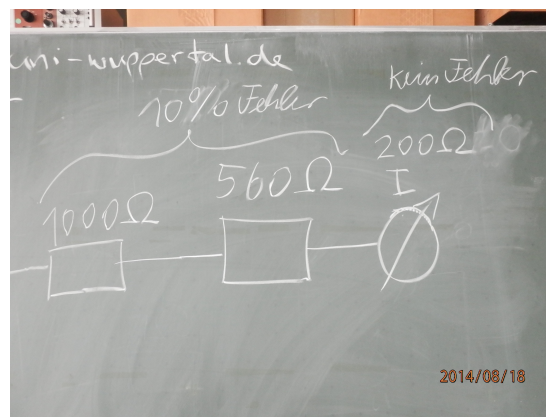 uni-wuppertal.de
kein Fehler
10% Fehler
200Ω
560Ω
I
1000Ω
2014/08/18